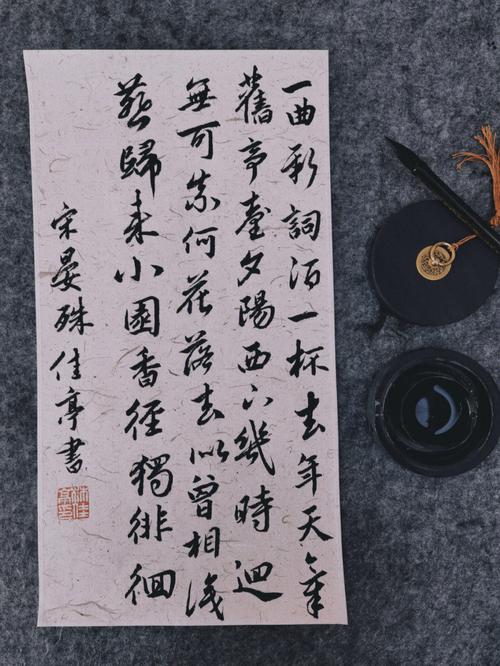 一曲新詞酒一杯去年天氣
舊亭臺夕陽西下幾時迴
無可奈何花落去似曾相識
燕歸來小園香徑獨徘徊
宋晏殊佳亭書